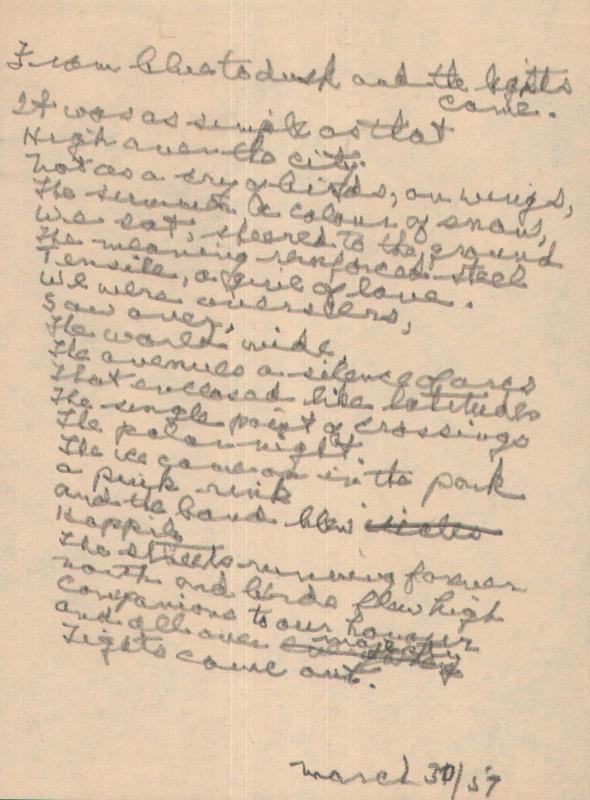 From blue to dusk and the lights
come.
It was as simple as that
High over the city.
Not as a cry of birds, on wings,
The summit a colour of snow,
We sat, sheered to the ground
The meaning reinforced steel
Tensile, of love.
We were overseers,
Saw over,
The world wide,
The avenues a silence of arcs
That enclosed like latitudes
The single point of crossings
The polar night
The ice came on in the park
a pink rink
and the band blew
Happily
The streets running forever
north and birds flew high
Companions to our honour
and all over majesty
Lights came out.
March 30/57